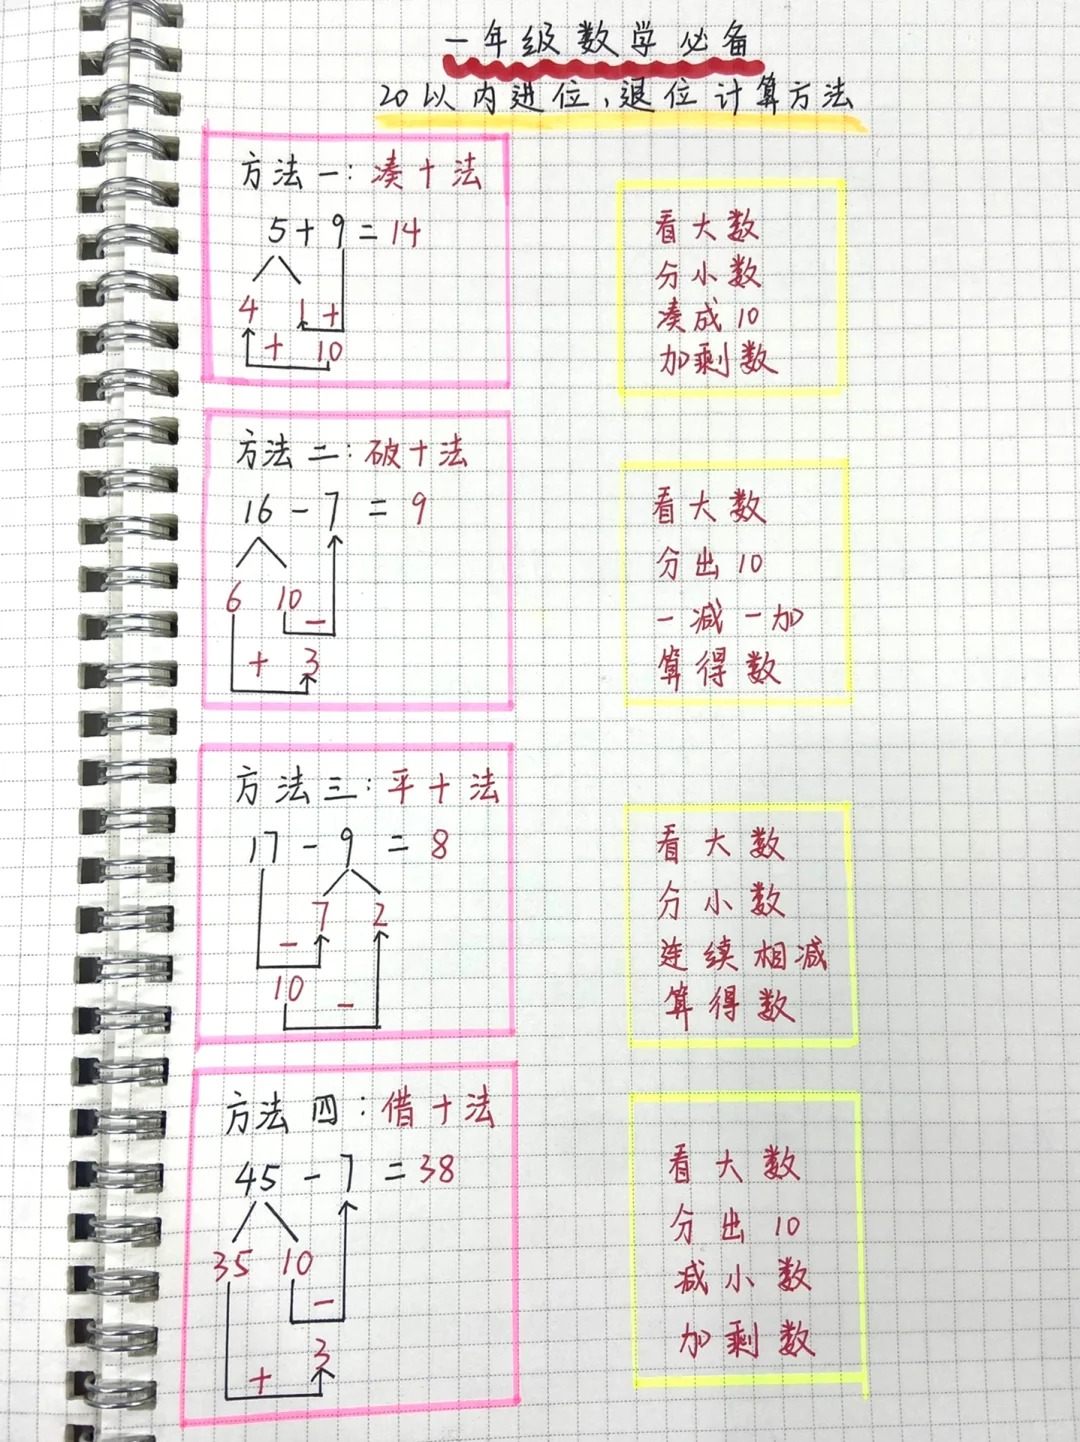 一年级数学必备
20以内进位、退位计算方法
方法一:凑十法
5+9=14
4 1 +
+ 10
看大数
分小数
凑成10
加剩数
方法二:破十法
16-7=9
6 10
-
+ 3
看大数
分出10
一减一加
算得数
方法三:平十法
17-9=8
7 2
-
10
-
看大数
分小数
连续相减
算得数
方法四:借十法
45-7=38
35 10
-
3
+
看大数
分出10
减小数
加剩数